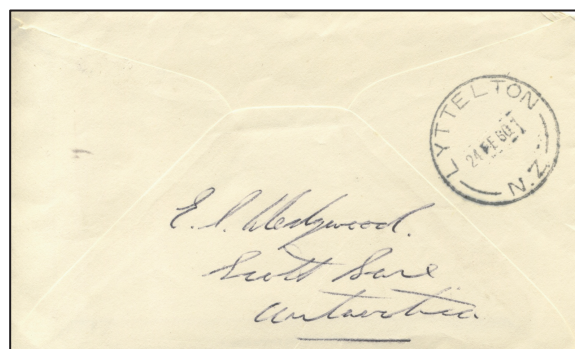 LYTTELTON
24 FE 60
N.Z.
Wedgwood.
Scott Base
Antarctica